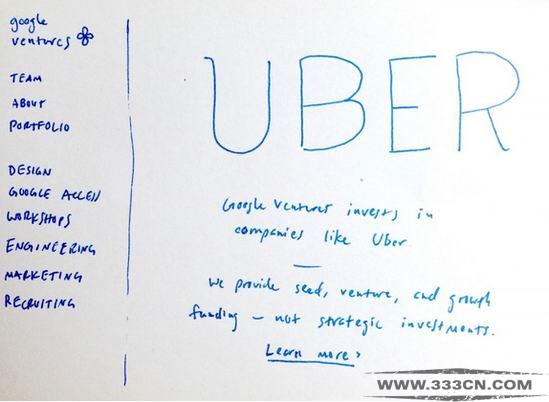 google
ventures
TEAM
ABOUT
PORTFOLIO
DESIGN
GOOGLE ACCESS
WORKSHOPS
ENGINEERING
MARKETING
RECRUITING
UBER
Google Ventures invests in
companies like Uber
We provide seed, venture, and growth
funding – not strategic investments.
Learn more >
WWW.333CN.COM